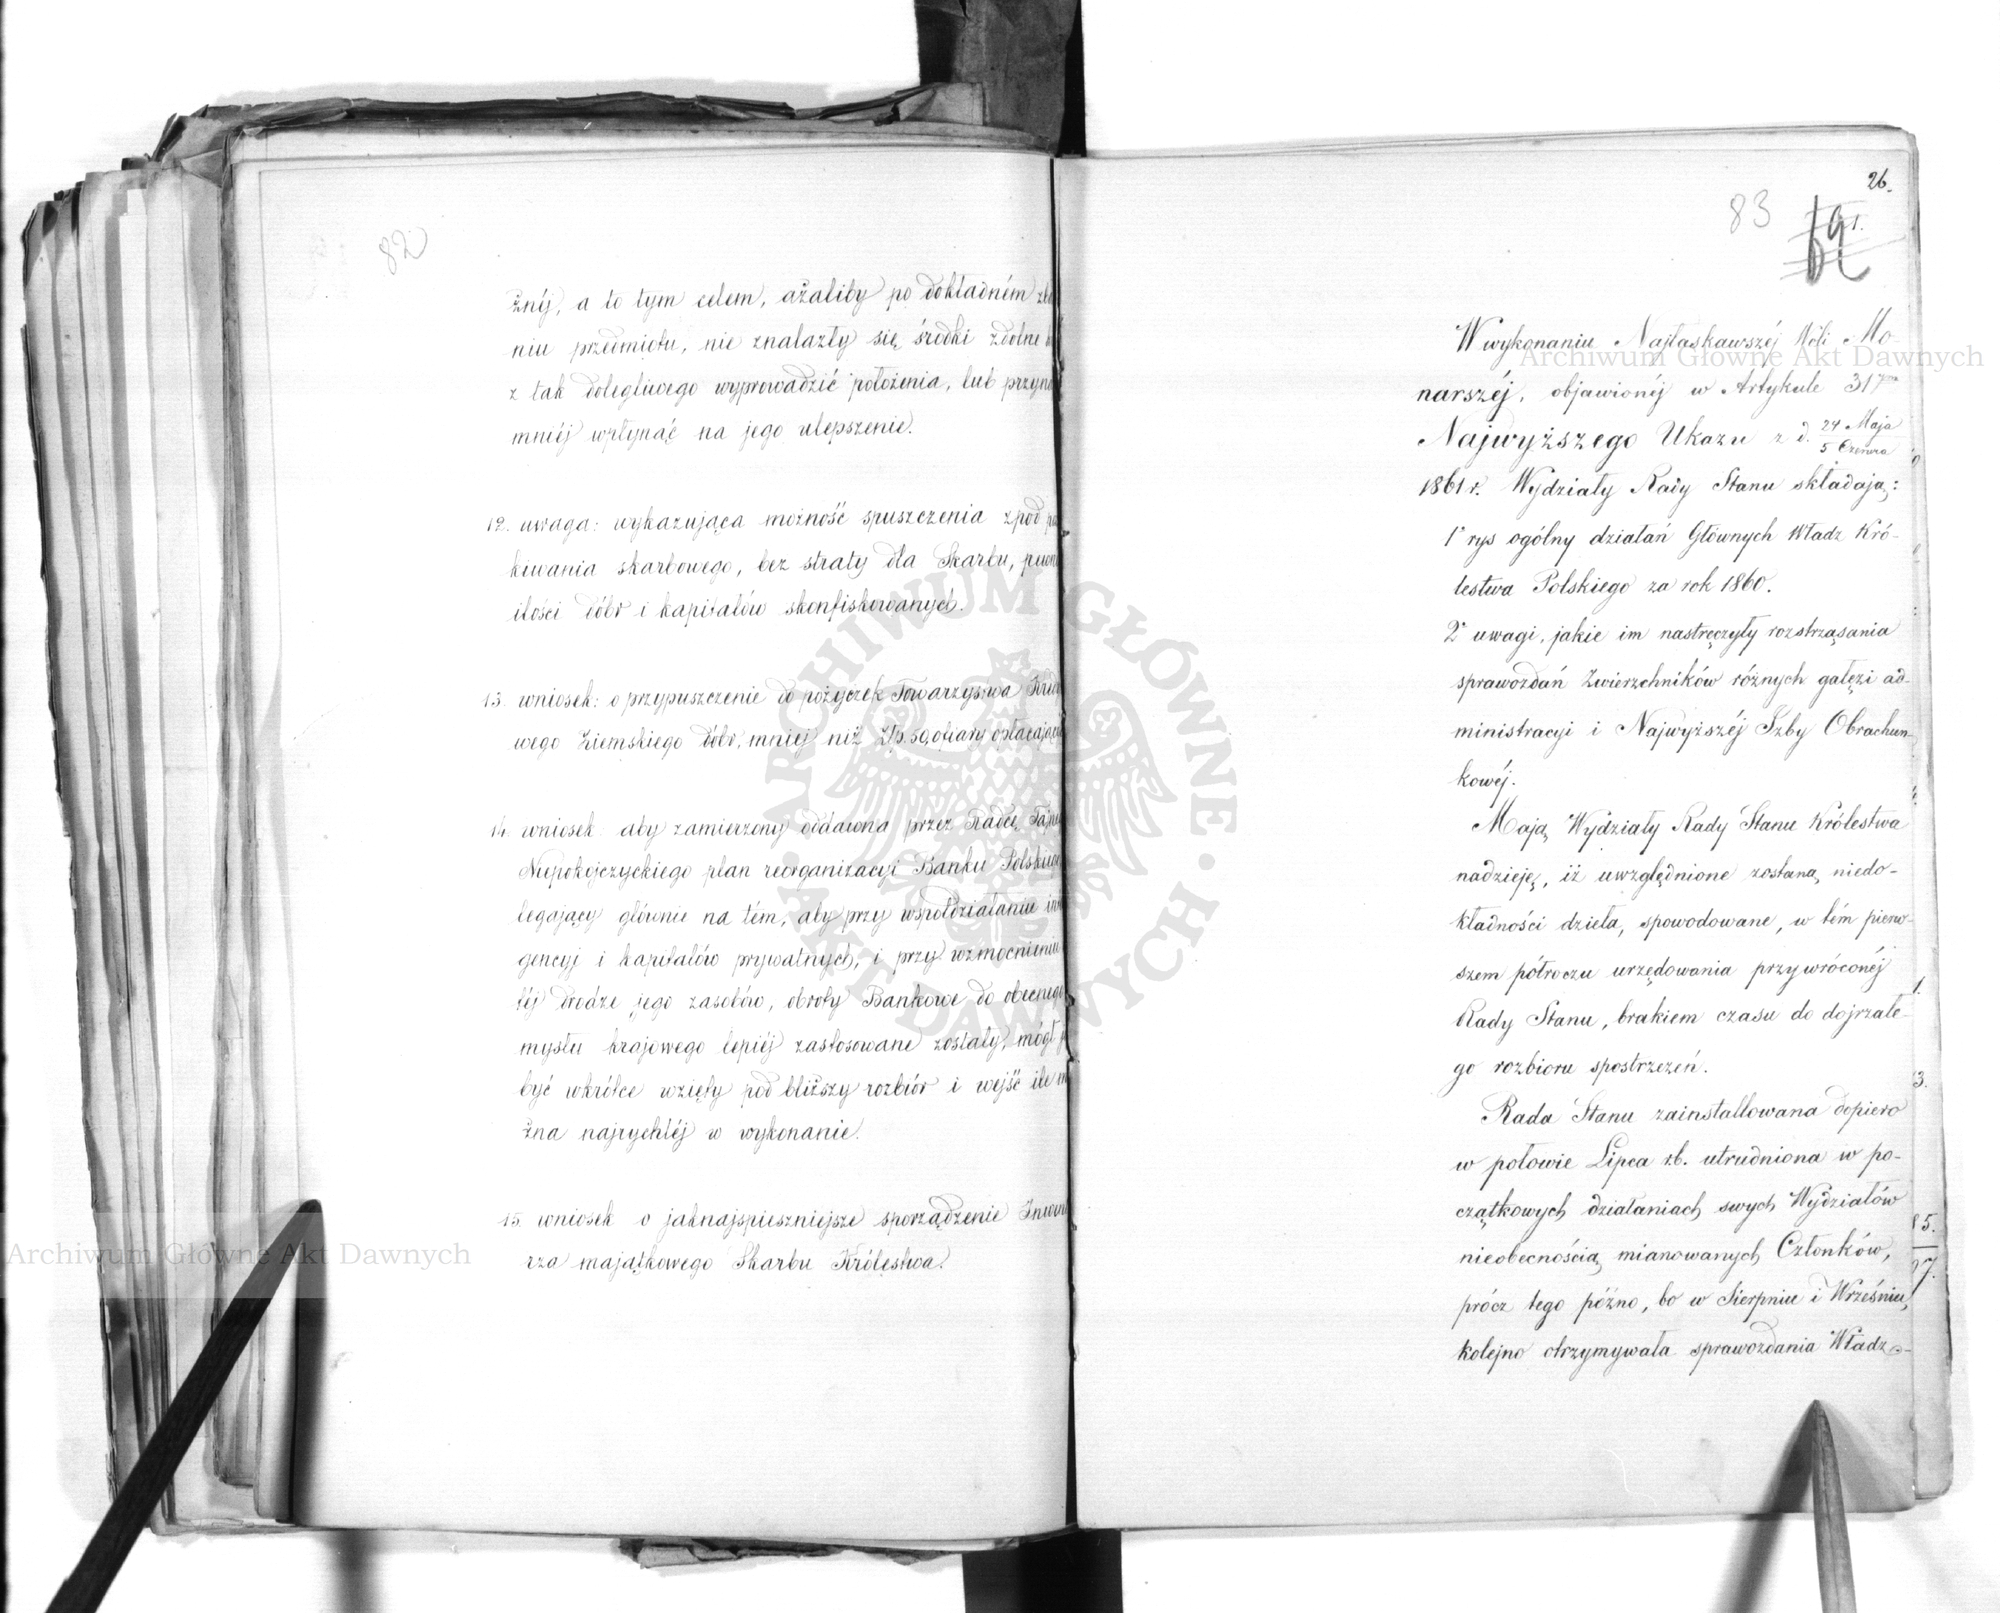 82
żnéj, a to tym celem, ażaliby po dokładném
niu przedmiotu, nie znalazły się środki zdolne
z tak dolegliwego wyprowadzić położenia, lub
mniéj wpłynąć na jego ulepszenie.
12. uwaga: wykazująca możność spuszczenia zpod
kiwania skarbowego, bez straty dla Skarbu,
ilości dóbr i kapitałów skonfiskowanych.
13. wniosek: o przypuszczenie do pożyczek Towarzystwa
wego Ziemskiego dóbr, mniej niż Złp. 50, ofiary
14. wniosek: aby zamierzony oddawna przez Radcę
Niepokojczyckiego plan reorganizacyi Banku
legający głównie na tém, aby przy współdziałaniu
gencyj i kapitałów prywatnych, i przy wzmocnieniu
téj drodze jego zasobów, obroty Bankowe do obecnego
mysłu krajowego lepiéj zastosowane zostały, mógł
być wkrótce wzięty pod bliższy rozbiór i wejść ile
żna najrychléj w wykonanie.
15. wniosek o jaknajspieszniejsze sporządzenie
rza majątkowego Skarbu Królestwa.
26.
83
1.
W wykonaniu Najłaskawszéj Woli Mo-
narszéj, objawionéj w Artykule 31
Najwyższego Ukazu z d. 24 Maja
5 Czerwca
1861 r. Wydziały Rady Stanu składają:
1° rys ogólny działań Głównych Władz Kró-
lestwa Polskiego za rok 1860.
2° uwagi, jakie im nastręczyły rozstrząsania
sprawozdań Zwierzchników różnych gałęzi ad-
ministracyi i Najwyższéj Izby Obrachun-
kowéj.
Mają Wydziały Rady Stanu Królestwa
nadzieję, iż uwzględnione zostaną niedo-
kładności dzieła, spowodowane, w tém pierw-
szem półroczu urzędowania przywróconéj
Rady Stanu, brakiem czasu do dojrzałe-
go rozbioru spostrzeżeń.
Rada Stanu zainstallowana dopiero
w połowie Lipca r.b. utrudniona w po-
czątkowych działaniach swych Wydziałów
nieobecnością mianowanych Członków,
prócz tego późno, bo w Sierpniu i Wrześniu,
kolejno otrzymywała sprawozdania Władz
Archiwum Główne Akt Dawnych
Archiwum Główne Akt Dawnych
ARCHIWUM GŁÓWNE AKT DAWNYCH